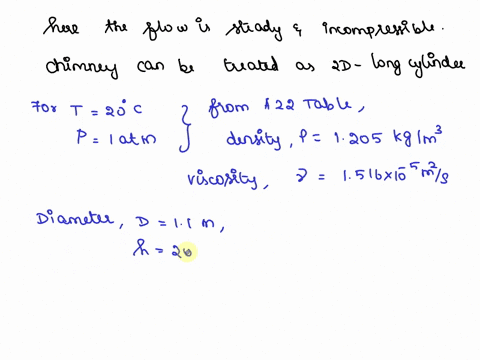 here the flow is steady & incompressible.
chimney can be treated as 2D-long cylinder
For T = 20°C } from A22 Table,
P = 1 atm density, ρ = 1.205 kg/m³
viscosity, ν = 1.516×10⁻⁵ m²/s
Diameter, D = 1.1 m,
h = 20